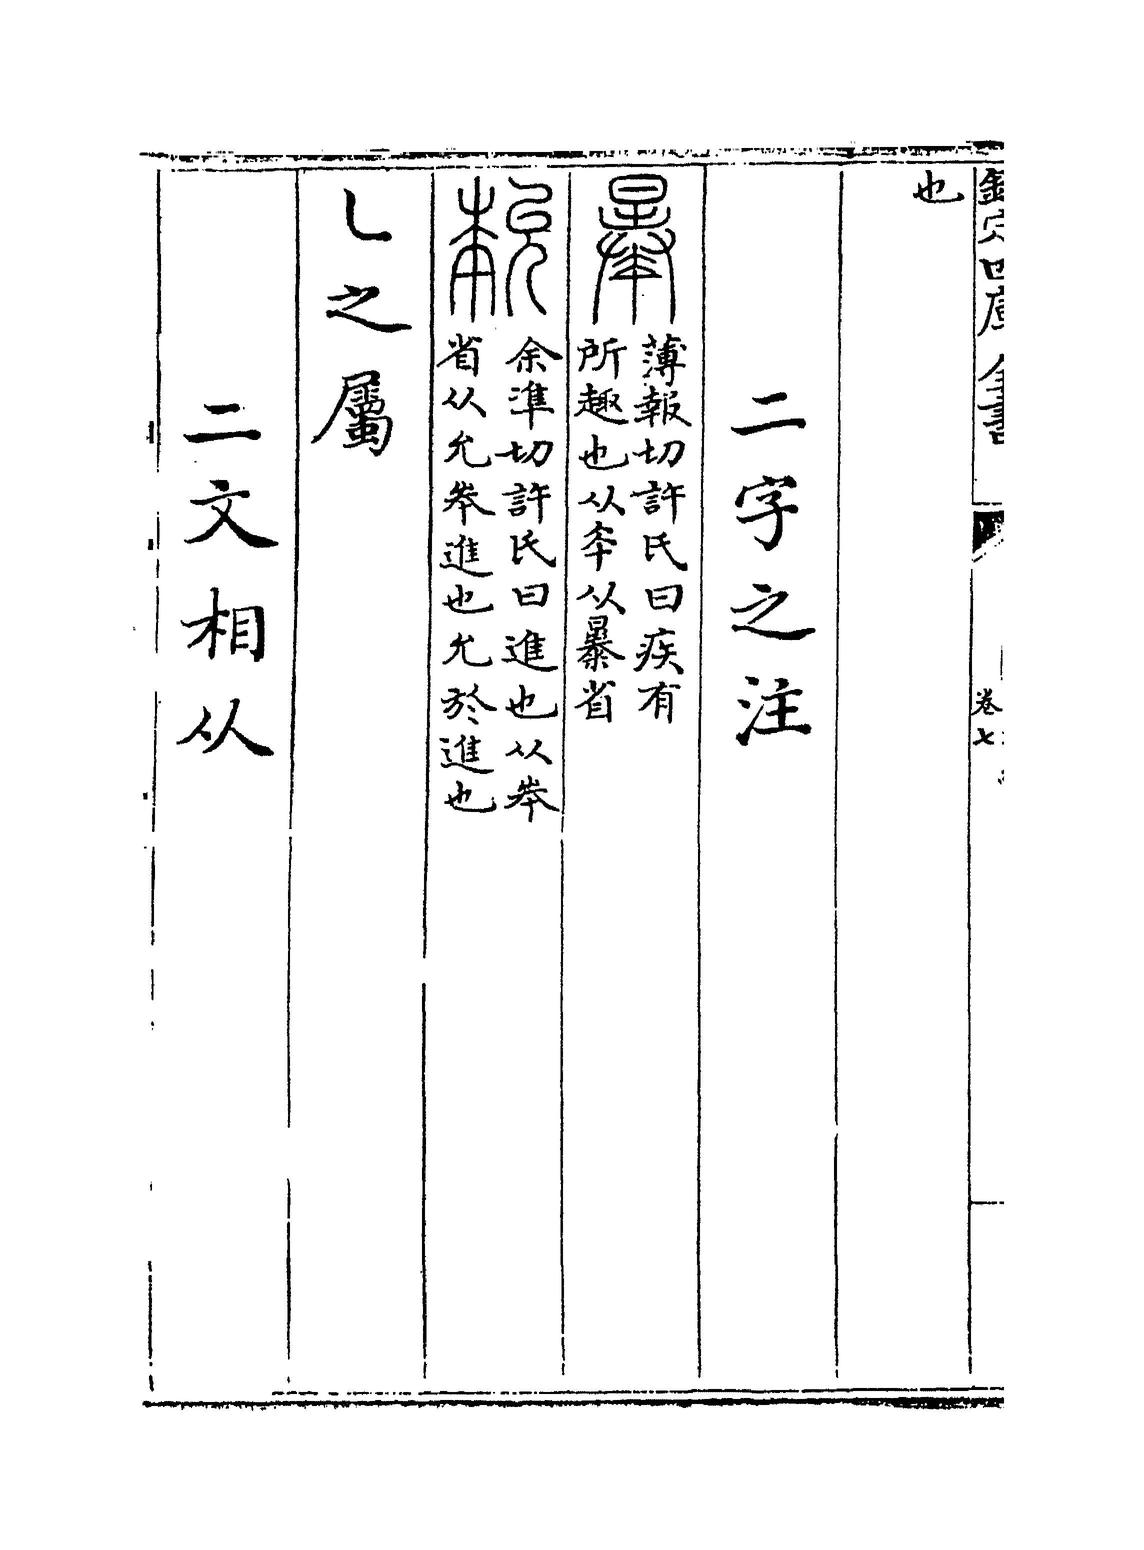 欽定四庫全書 卷七
也
二字之注
㬥
薄報切許氏曰疾有
所趣也从夲从暴省
余準切許氏曰進也从𠦪
省从允𠦪進也允於進也
乚之屬
二文相从